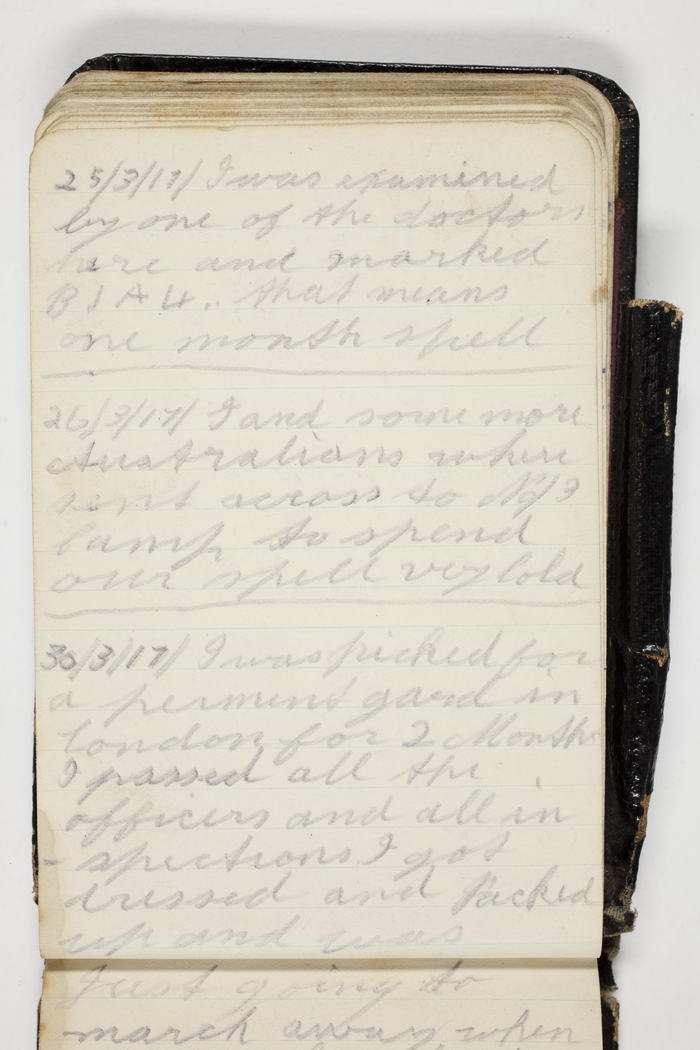 25/3/17/ I was examined
by one of the doctors
here and marked
B1A4. that means
one month spell
26/3/17/ I and some more
Australians where
sent across to No/3
Camp to spend
our spell vey Cold
30/3/17/ I was picked for
a perment gard in
London for 2 Months
I passed all the
officers and all in
- spections I got
dressed and Packed
up and was
Just going to
march away when